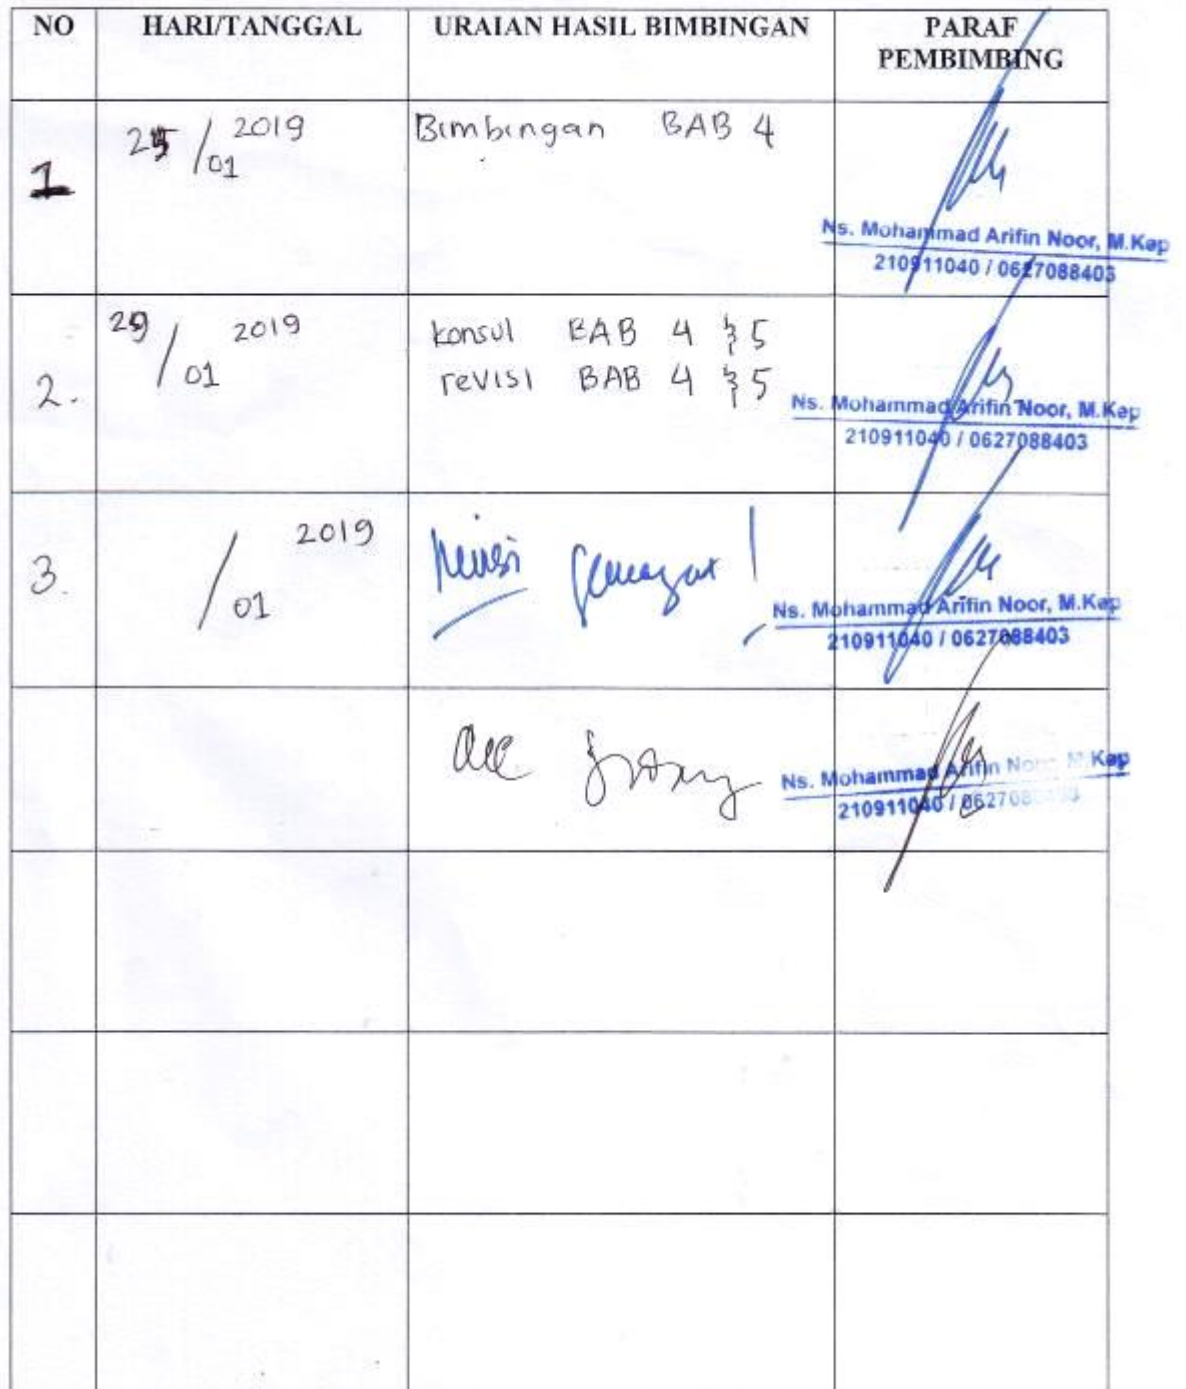 NO HARI/TANGGAL URAIAN HASIL BIMBINGAN PARAF
PEMBIMBING
1 25/01 2019 Bimbingan BAB 4
Ns. Mohammad Arifin Noor, M.Kep
210911040 / 0627088403
2. 29/01 2019 konsul BAB 4 & 5
revisi BAB 4 & 5
Ns. Mohammad Arifin Noor, M.Kep
210911040 / 0627088403
3. /01 2019 !
Ns. Mohammad Arifin Noor, M.Kep
210911040 / 0627088403
Ns. Mohammad Arifin Noor, M.Kep
210911040 /